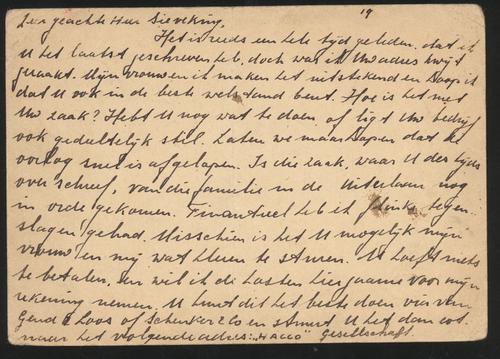 19
Zeer geachte Heer Sieveking,
Het is reeds een hele tijd geleden, dat ik
U het laatst geschreven heb, doch was ik Uw adres kwijt
geraakt. Mijn vrouw en ik maken het uitstekend en hoop ik
dat U ook in de beste welstand bent. Hoe is het met
Uw zaak? Hebt U nog wat te doen, of ligt Uw bedrijf
ook gedultelijk stil. Laten we maar hopen dat de
oorlog snel is afgelopen. Is die zaak, waar U destijds
over schreef, van die familie in de nog
in orde gekomen. Finantieel heb ik flinke tegen-
slagen gehad. Misschien is het U mogelijk mijn
vrouw en mij wat kleren te sturen. U hoeft niets
te betalen, en wil ik de kosten hier gaarne voor mijn
rekening nemen. U kunt dit het beste doen via van
Gend & Loos of Schenker & Co en stuurt U het dan
naar het volgende adres: "HACCO" Gesellschaft.